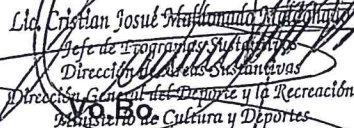 Lic. Cristian Josué Maldonado Maldonado
Jefe de Programas Sustantivos
Dirección de Áreas Sustantivas
Dirección General del Deporte y la Recreación
Vo.Bo.
Ministerio de Cultura y Deportes